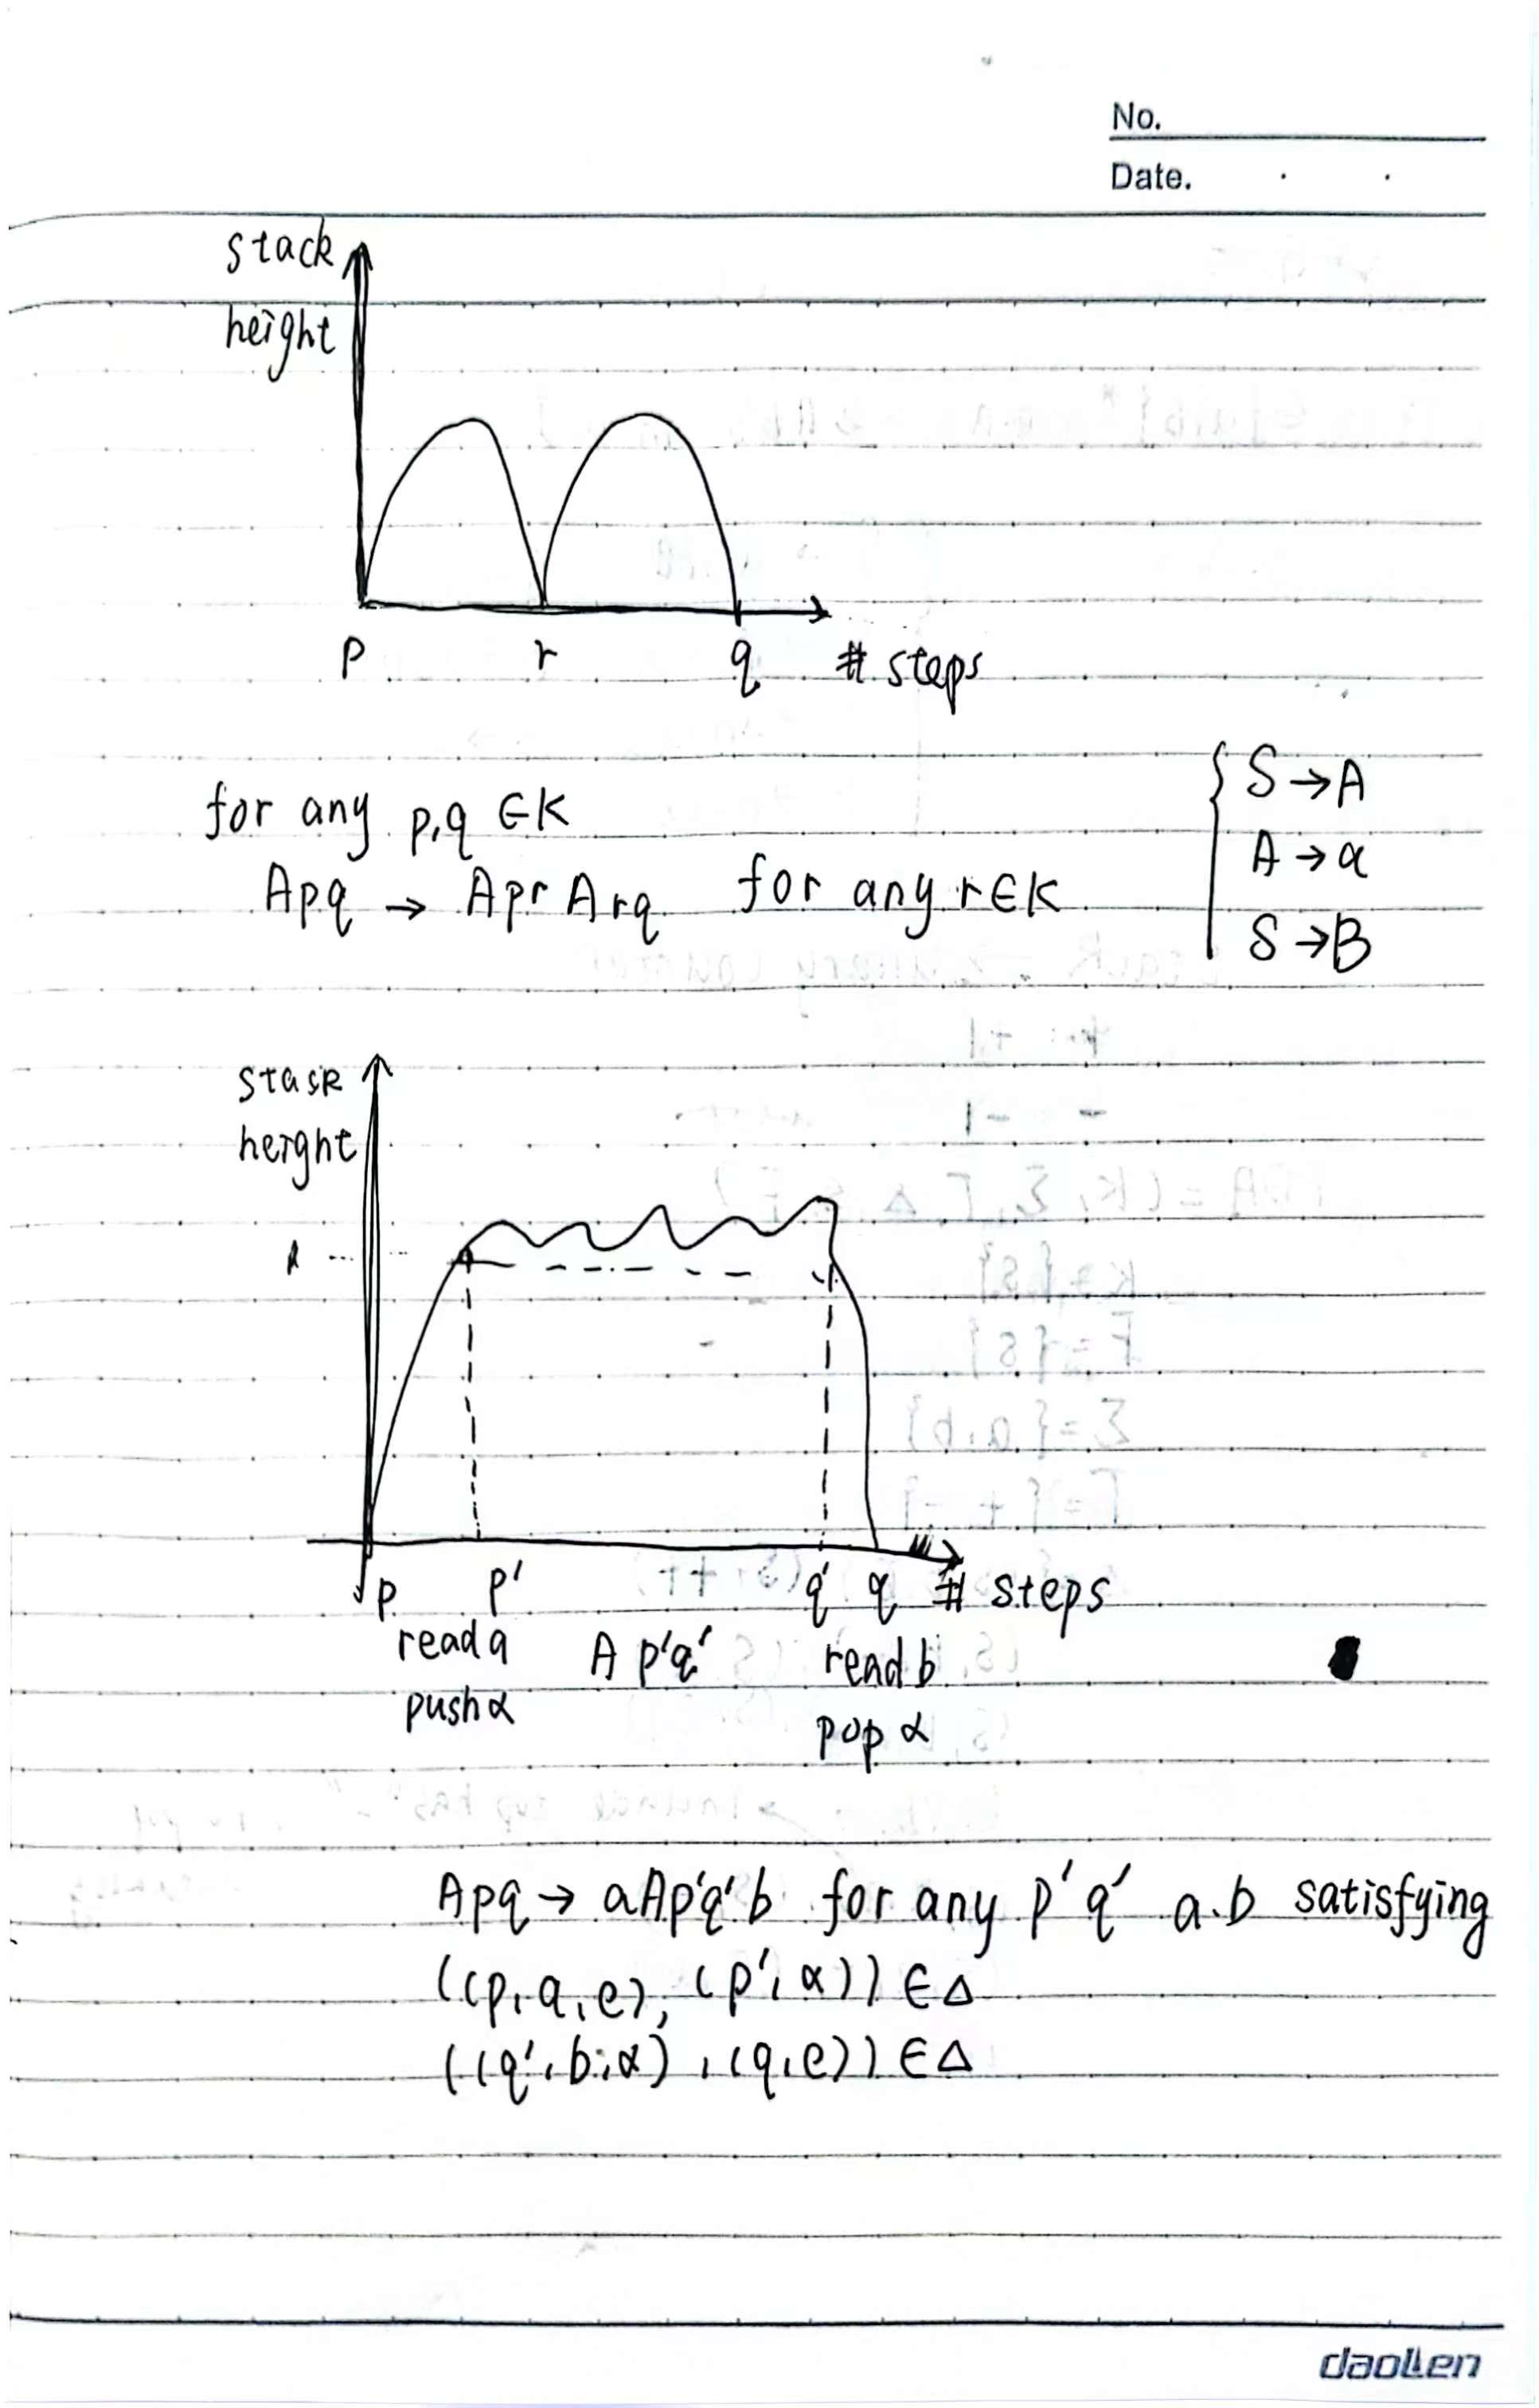 No.
Date. . .
stack
height
p r q # steps
for any p,q ∈K
Apq → Apr Arq for any r∈K
{ S → A
A → a
S → B
stack
height
p p' q' q # steps
read a A p'q' read b
push α pop α
Apq → aAp'q'b for any p' q' a.b satisfying
((p,a,e),(p',α)) ∈Δ
((q',b,α),(q,e)) ∈Δ
daolen